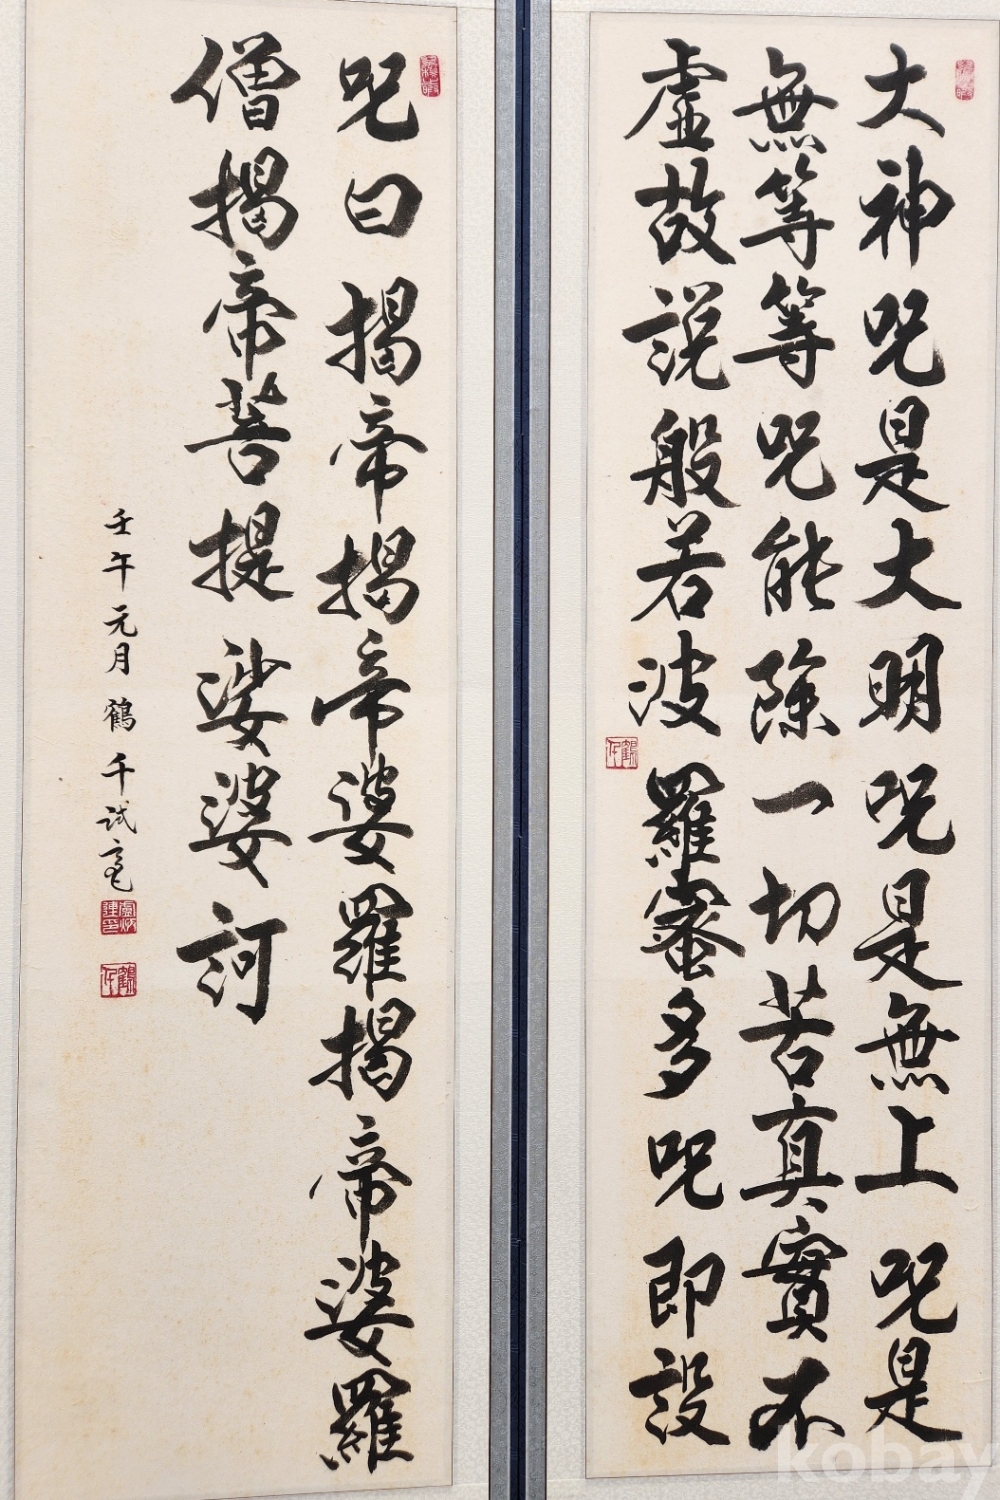 大神呪是大明呪是無上呪是
無等等呪能除一切苦真實不
虛故說般若波羅蜜多呪即設
呪曰揭帝揭帝婆羅揭帝婆羅
僧揭帝菩提娑婆訶
壬午元月鶴千試毫
kobay